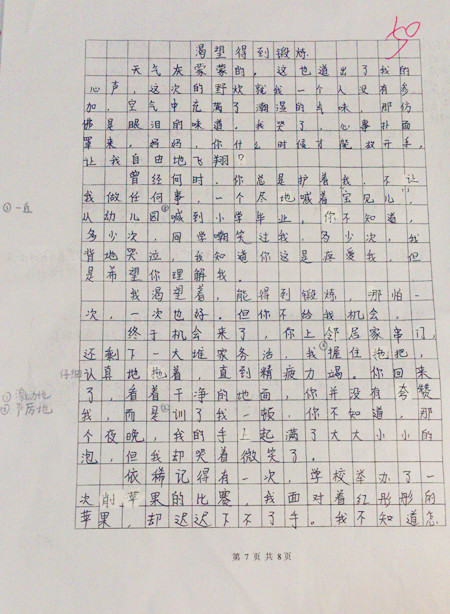 50
渴望得到锻炼
天气灰蒙蒙的，这也道出了我的
心声，这次的野炊就我一个人没有参
加，空气中充满了潮湿的气味，那仿
佛是眼泪的味道，我哭了，心事扑面
罩来，妈妈，你什么时候才能放开手，
让我自由地飞翔？
曾经何时，你总是护着我，不让
我做任何事，一个尽地喊着宝贝儿，
① 一直
从幼儿园喊到小学毕业，你不知道，
多少次，同学嘲笑过我，多少次，我
背地哭泣，我知道你这是在爱我，但
是希望你理解我。
我渴望着，能得到锻炼，哪怕一
次，一次也好。但你不给我机会。
终于机会来了，你上邻居家串门，
还剩下一大堆家务活，我握住拖把，
仔细
认真地拖着，直到精疲力竭。你回来
了，看着干净的地面，你并没有夸赞
① 激动地
② 严厉地
我，而是训了我一顿，你不知道，那
个夜晚，我的手上起满了大大小小的
泡，但我却哭着微笑了。
依稀记得有一次，学校举办了一
次削苹果的比赛，我面对着红彤彤的
苹果，却迟迟下不了手。我不知道怎
第 7 页 共 8 页